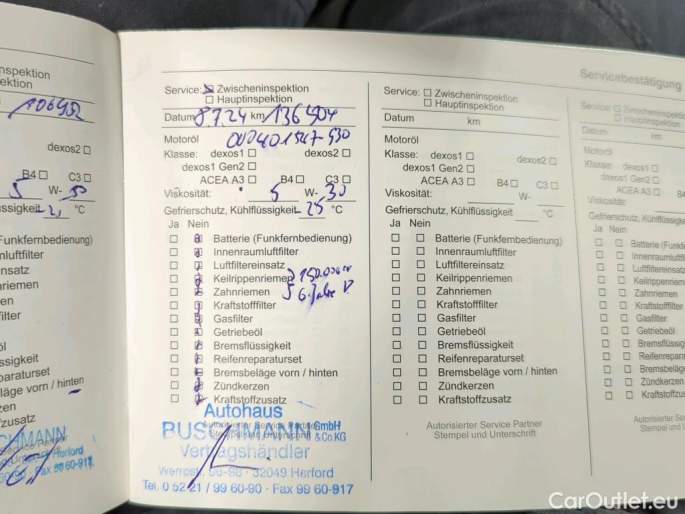 nspektion
pektion
106982
dexos2
B4 C3
5 W- 30
ssigkeit
unkfernbedienung)
mluftfilter
nsatz
riemen
en
ilter
öl
sigkeit
paraturset
eläge vorn / hinten
zen
zusatz
CHMANN
60-917
Service: Zwischeninspektion
Hauptinspektion
Datum 8.7.24 km 136504
Motoröl
Klasse: dexos1 dexos2
dexos1 Gen2
ACEA A3 B4 C3
Viskosität: 5 W- 30
Gefrierschutz, Kühlflüssigkeit -25 °C
Ja Nein
Batterie (Funkfernbedienung)
Innenraumluftfilter
Luftfiltereinsatz
Keilrippenriemen 150.000
Zahnriemen 6 Jahre
Kraftstofffilter
Gasfilter
Getriebeöl
Bremsflüssigkeit
Reifenreparaturset
Bremsbeläge vorn / hinten
Zündkerzen
Kraftstoffzusatz
Autohaus
Autorisierter Service Partner
BUSCHMANN GmbH & Co.KG
Stempel und Unterschrift
Vertragshändler
32049 Herford
Tel. 0 52 21 / 99 60-90 · Fax 99 60-917
Service: Zwischeninspektion
Hauptinspektion
Datum km
Motoröl
Klasse: dexos1 dexos2
dexos1 Gen2
ACEA A3 B4 C3
Viskosität: W-
Gefrierschutz, Kühlflüssigkeit °C
Ja Nein
Batterie (Funkfernbedienung)
Innenraumluftfilter
Luftfiltereinsatz
Keilrippenriemen
Zahnriemen
Kraftstofffilter
Gasfilter
Getriebeöl
Bremsflüssigkeit
Reifenreparaturset
Bremsbeläge vorn / hinten
Zündkerzen
Kraftstoffzusatz
Autorisierter Service Partner
Stempel und Unterschrift
Servicebestätigung
Service: Zwischeninspektion
Hauptinspektion
Datum km
Motoröl
Klasse: dexos1
dexos1 Gen2
ACEA A3 B4
Viskosität:
Gefrierschutz, Kühlflüssigkeit
Ja Nein
Batterie (Funkfe
Innenraumluftf
Luftfiltereinsatz
Keilrippenriem
Zahnriemen
Kraftstofffilter
Gasfilter
Getriebeöl
Bremsflüssig
Reifenrepara
Bremsbeläge
Zündkerzen
Kraftstoffzus
Autorisierter
Stempel u
CarOutlet.eu